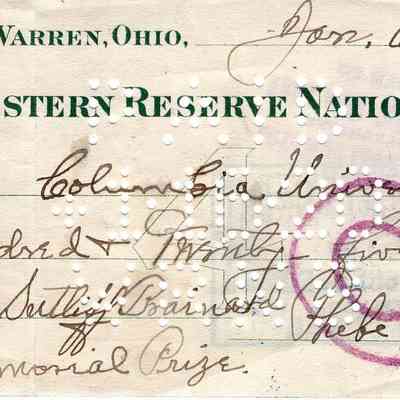 WARREN, OHIO, Jan.
STERN RESERVE NATIO
Columbia Unive
dred & Twenty-five
Sutliff Brainard Phebe
morial Prize.